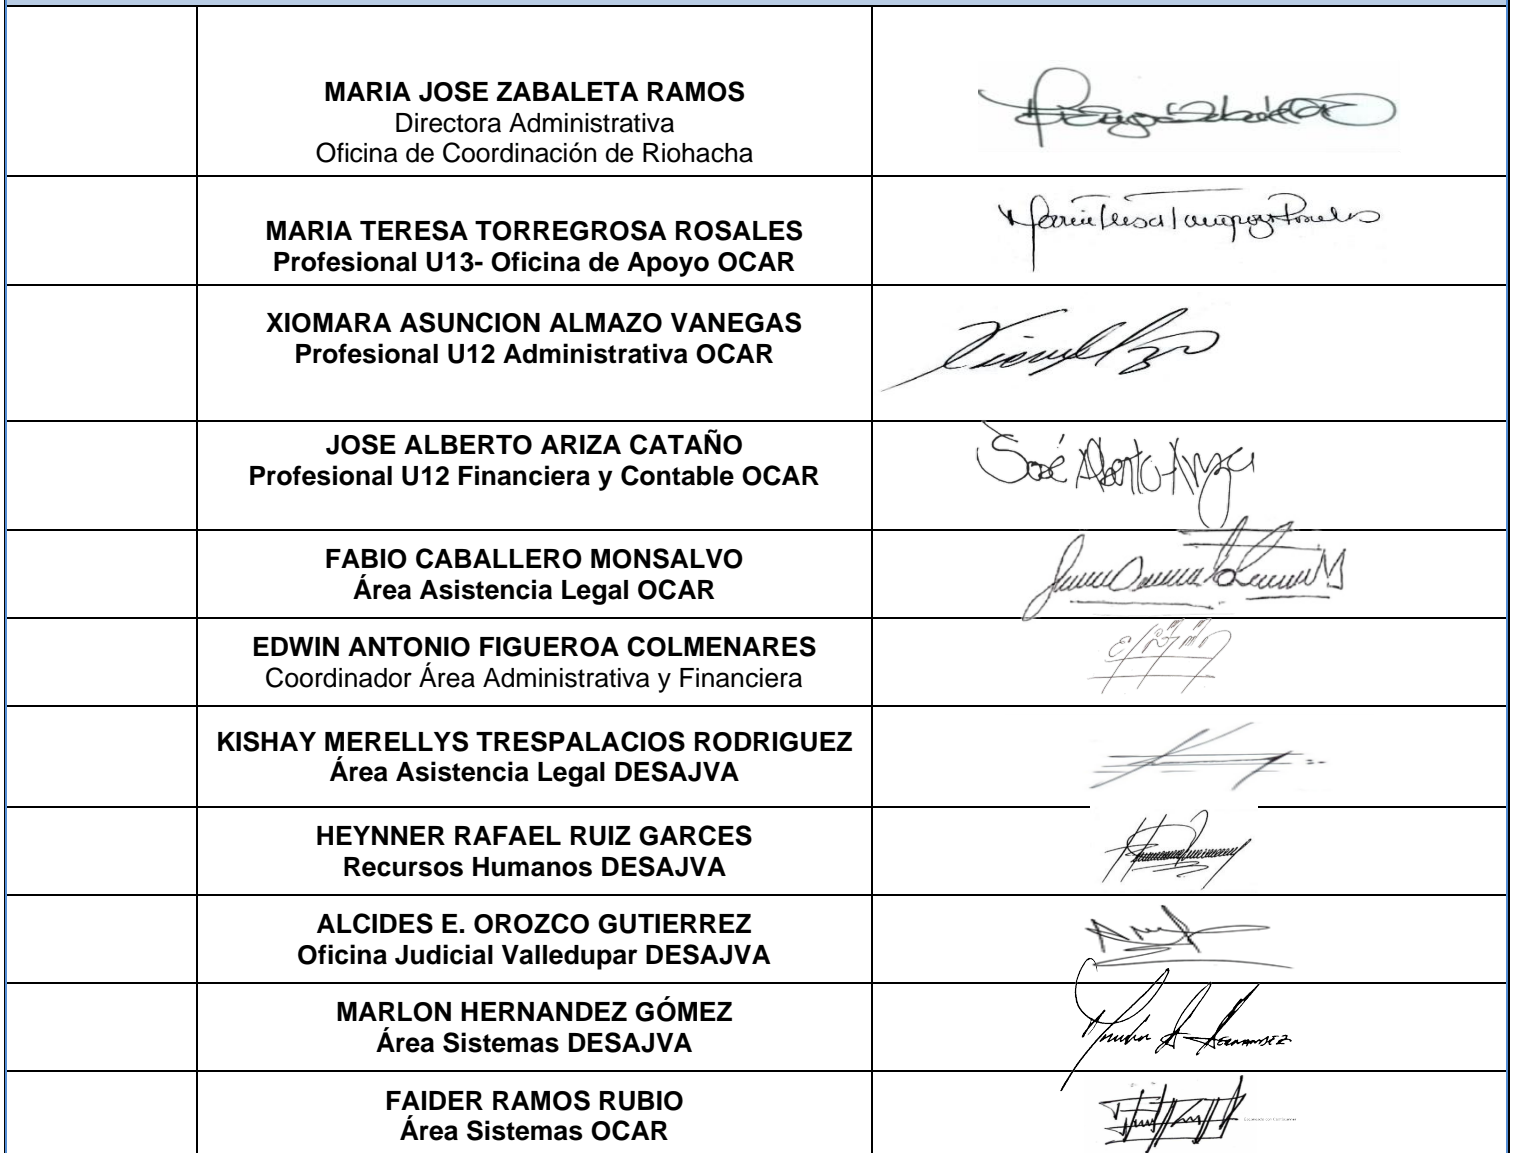 MARIA JOSE ZABALETA RAMOS
Directora Administrativa
Oficina de Coordinación de Riohacha
MARIA TERESA TORREGROSA ROSALES
Profesional U13- Oficina de Apoyo OCAR
XIOMARA ASUNCION ALMAZO VANEGAS
Profesional U12 Administrativa OCAR
JOSE ALBERTO ARIZA CATAÑO
Profesional U12 Financiera y Contable OCAR
José Alberto Ariza
FABIO CABALLERO MONSALVO
Área Asistencia Legal OCAR
EDWIN ANTONIO FIGUEROA COLMENARES
Coordinador Área Administrativa y Financiera
KISHAY MERELLYS TRESPALACIOS RODRIGUEZ
Área Asistencia Legal DESAJVA
HEYNNER RAFAEL RUIZ GARCES
Recursos Humanos DESAJVA
ALCIDES E. OROZCO GUTIERREZ
Oficina Judicial Valledupar DESAJVA
MARLON HERNANDEZ GÓMEZ
Área Sistemas DESAJVA
FAIDER RAMOS RUBIO
Área Sistemas OCAR